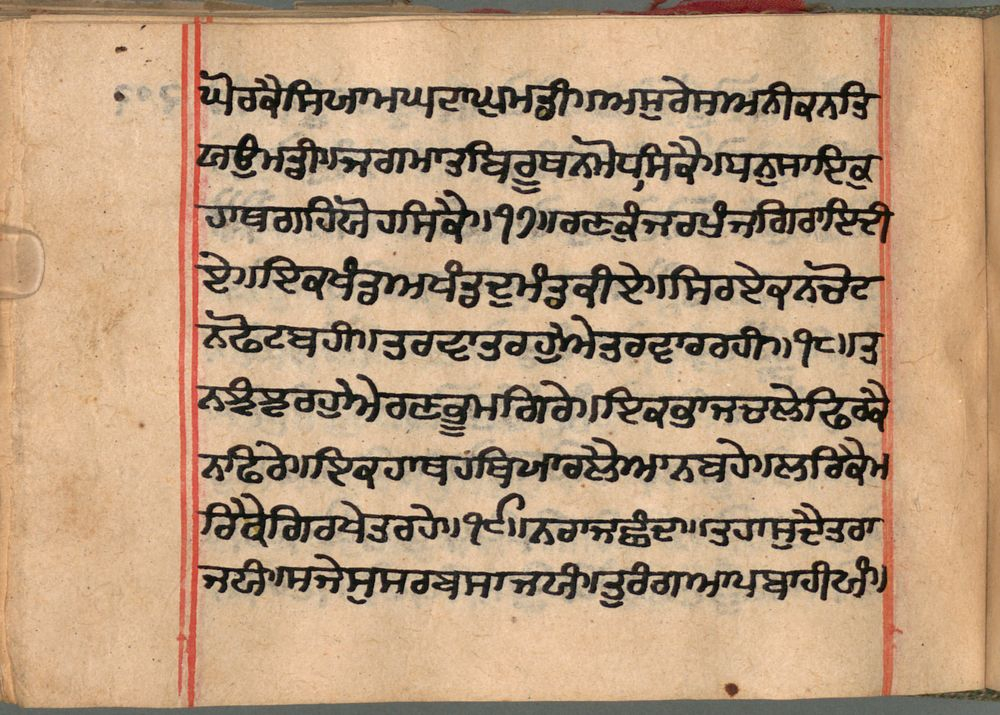 ਘੋਰਕੈਸਿਯਾਮਘਟਾਘੁਮਡੀ॥ਅਸੁਰੇਸਅਨੀਕਨਤਿ
ਯਉੁਮਡੀ॥ਜਗਮਾਤਬਿਰੂਥਨਮੋਧਸਿਕੈ॥ਧਨੁਸਾਇਕੁ
ਹਾਥਗਹਿਯੋਹਸਿਕੈ॥੧੭॥ਰਣਕੁੰਜਰਪੁੰਜਗਿਰਾਇਦੀ
ਏ॥ਇਕਖੰਡਅਖੰਡਦੁਖੰਡਕੀਏ॥ਸਿਰਏਕਨਚੋਟ
ਨਫੋਟਬਹੀ॥ਤਰਵਾਤਰਹੁਐਤਰਵਾਰਰਹੀ॥੧੮॥ਤ
ਨਝੰਝਰਹੁਐਰਣਭੂਮਗਿਰੇ॥ਇਕਭਾਜਚਲੇਫਿਰਕੈ
ਨਾਫਿਰੇ॥ਇਕਹਾਥਹਥਿਯਾਰਲੈਆਨਬਹੇ॥ਲਰਿਕੈਮ
ਰਿਕੈਗਿਰਖੇਤਰਹੇ॥੧੯॥ਨਰਾਜਛੰਦ॥ਤਹਾਸੁਦੈਤਰਾ
ਜਯੰ॥ਸਜੇਸੁਸਰਬਸਾਜਯੰ॥ਤੁਰੰਗਆਪਬਾਹੀਯੰ॥